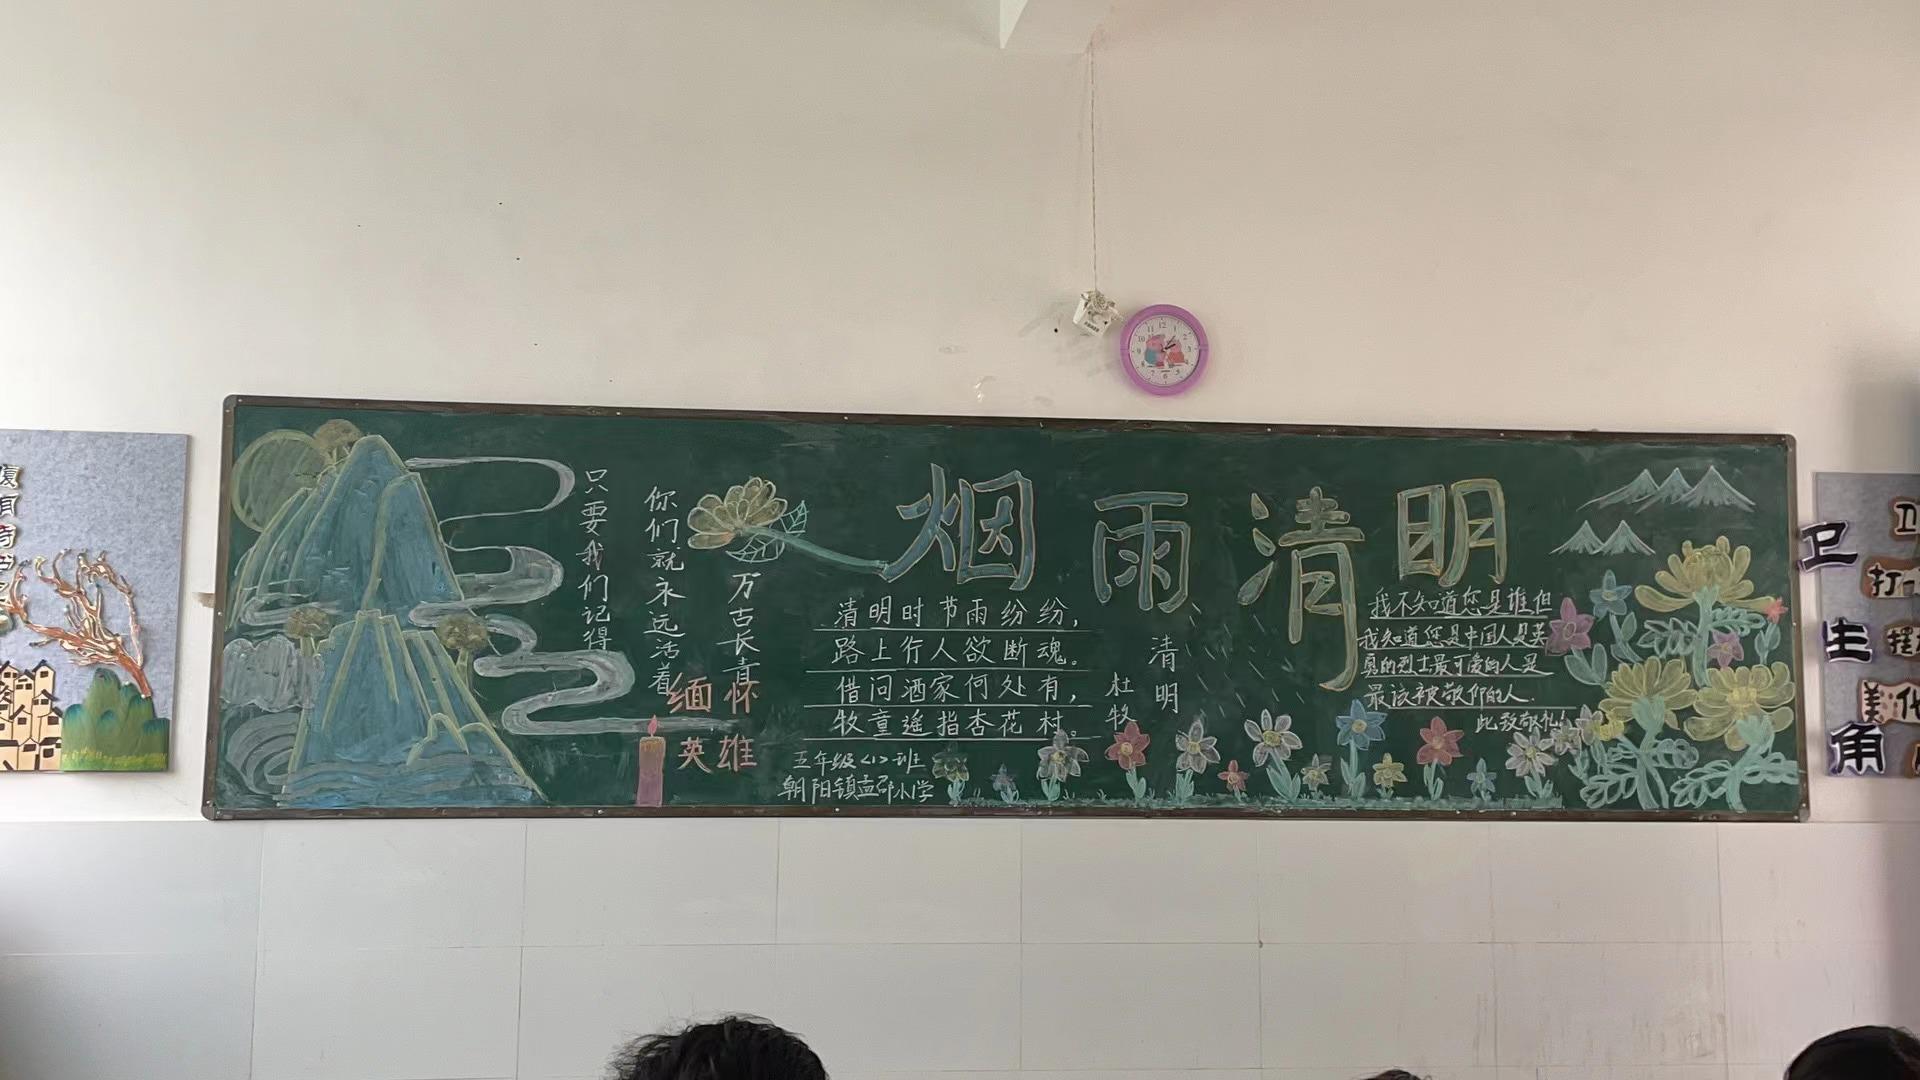 烟雨清明
只要我们记得
你们就永远活着
万古长青
缅怀
英雄
清明时节雨纷纷，
路上行人欲断魂。
借问酒家何处有，
牧童遥指杏花村。
清明
杜牧
五年级<1>班
朝阳镇孟邵小学
我不知道您是谁但
我知道您是中国人是英
勇的烈士最可爱的人是
最该被敬仰的人.
此致敬礼!
卫
生
角